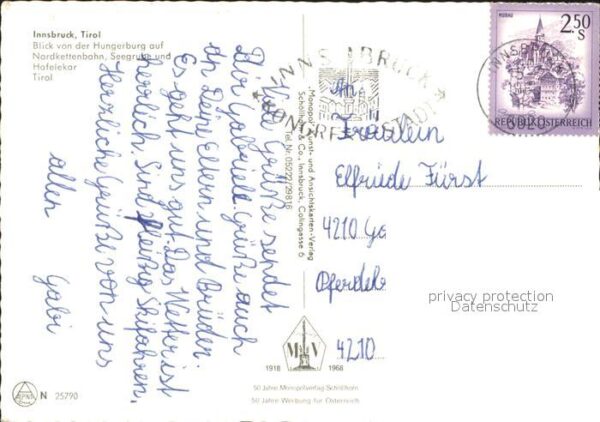 Innsbruck, Tirol
Blick von der Hungerburg auf
Nordkettenbahn, Seegrube und
Hafelekar
Tirol
Viele Grüße sendet
Dir Gabriele Grüße auch
an Deine Eltern und Brüder.
Es geht uns gut. Das Wetter ist
herrlich. Sind fleißig Skifahren.
Herzliche Grüße von uns
allen Gabi
"Monopol" Kunst- und Ansichtskarten-Verlag
Schöllhorn & Co., Innsbruck, Colingasse 6
Tel. Nr. 05222/29816
INNSBRUCK
KONGRESSSTADT
INNSBRUCK
6020
MURAU
2.50
S
REPUBLIK ÖSTERREICH
An
Fräulein
Elfriede Fürst
4210
4210
privacy protection
Datenschutz
1918 M V 1968
50 Jahre Monopolverlag Schöllhorn
50 Jahre Werbung für Österreich
N 25790